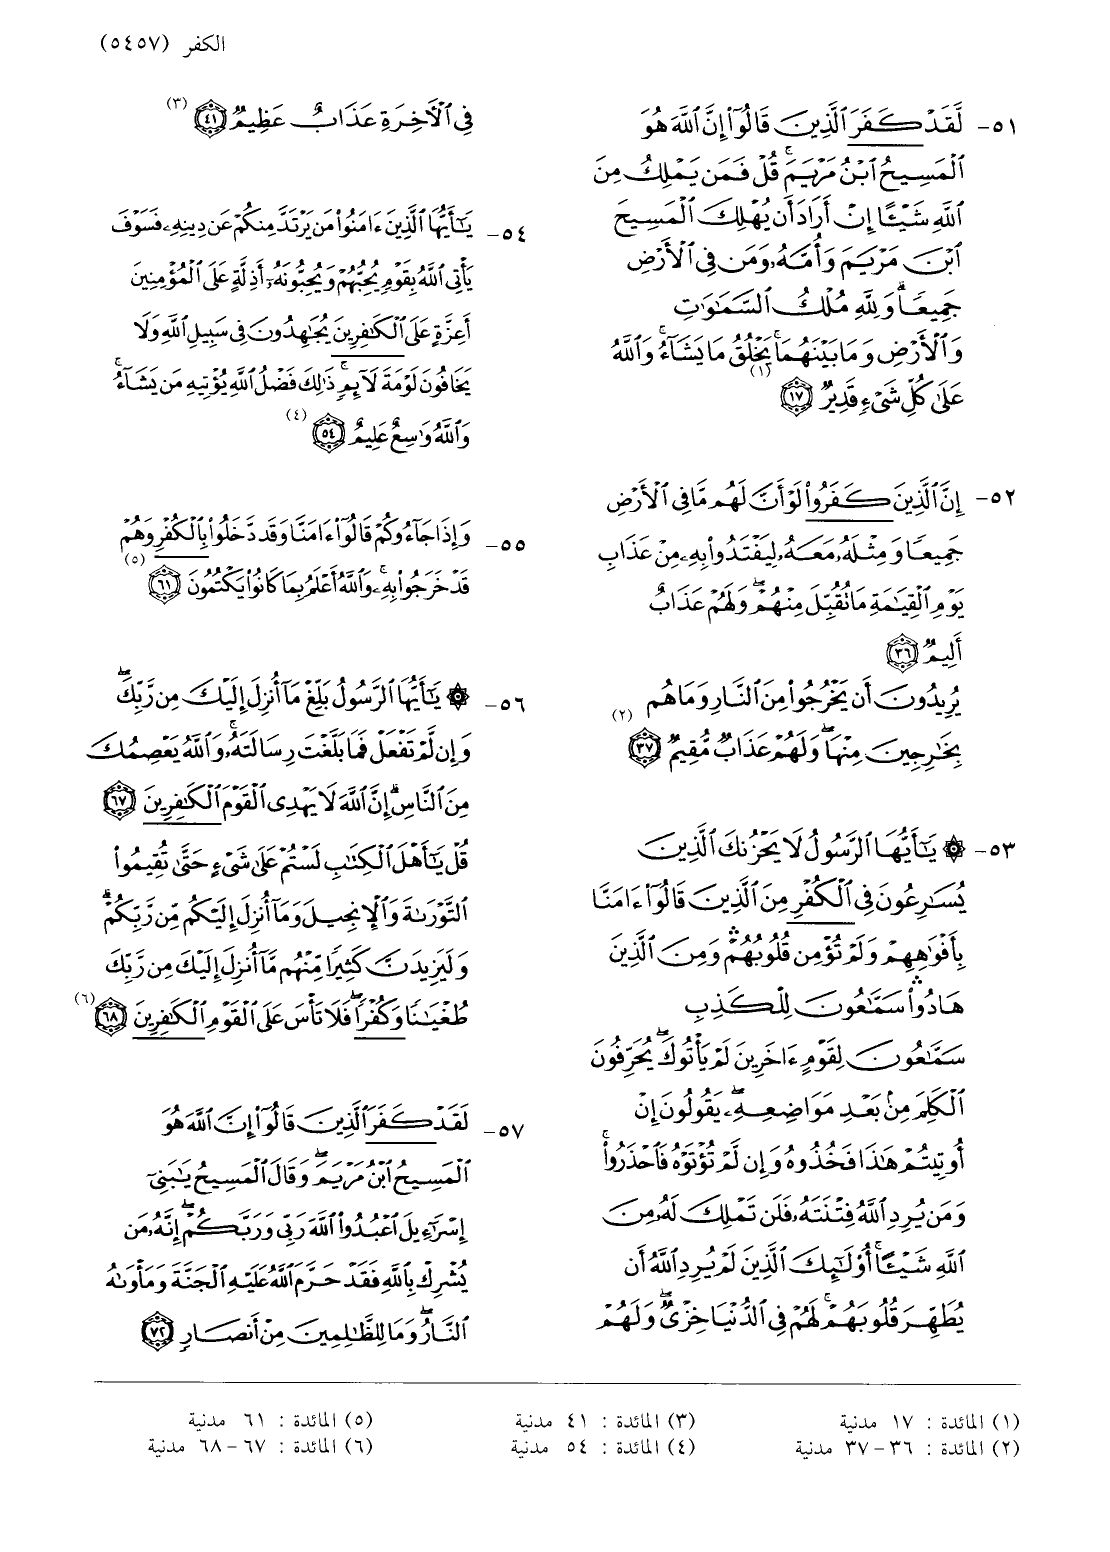 الكفر (٥٤٥٧)
٥١- لَّقَدْ كَفَرَ ٱلَّذِينَ قَالُوٓا۟ إِنَّ ٱللَّهَ هُوَ
ٱلْمَسِيحُ ٱبْنُ مَرْيَمَ ۚ قُلْ فَمَن يَمْلِكُ مِنَ
ٱللَّهِ شَيْـًٔا إِنْ أَرَادَ أَن يُهْلِكَ ٱلْمَسِيحَ
ٱبْنَ مَرْيَمَ وَأُمَّهُۥ وَمَن فِى ٱلْأَرْضِ
جَمِيعًا ۗ وَلِلَّهِ مُلْكُ ٱلسَّمَٰوَٰتِ
وَٱلْأَرْضِ وَمَا بَيْنَهُمَا ۚ يَخْلُقُ مَا يَشَآءُ ۚ وَٱللَّهُ
عَلَىٰ كُلِّ شَىْءٍ قَدِيرٌ ﴿١٧﴾ (١)
٥٢- إِنَّ ٱلَّذِينَ كَفَرُوا۟ لَوْ أَنَّ لَهُم مَّا فِى ٱلْأَرْضِ
جَمِيعًا وَمِثْلَهُۥ مَعَهُۥ لِيَفْتَدُوا۟ بِهِۦ مِنْ عَذَابِ
يَوْمِ ٱلْقِيَٰمَةِ مَا تُقُبِّلَ مِنْهُمْ ۖ وَلَهُمْ عَذَابٌ
أَلِيمٌ ﴿٣٦﴾
يُرِيدُونَ أَن يَخْرُجُوا۟ مِنَ ٱلنَّارِ وَمَا هُم
بِخَٰرِجِينَ مِنْهَا ۖ وَلَهُمْ عَذَابٌ مُّقِيمٌ ﴿٣٧﴾ (٢)
٥٣- ۞ يَٰٓأَيُّهَا ٱلرَّسُولُ لَا يَحْزُنكَ ٱلَّذِينَ
يُسَٰرِعُونَ فِى ٱلْكُفْرِ مِنَ ٱلَّذِينَ قَالُوٓا۟ ءَامَنَّا
بِأَفْوَٰهِهِمْ وَلَمْ تُؤْمِن قُلُوبُهُمْ ۛ وَمِنَ ٱلَّذِينَ
هَادُوا۟ ۛ سَمَّٰعُونَ لِلْكَذِبِ
سَمَّٰعُونَ لِقَوْمٍ ءَاخَرِينَ لَمْ يَأْتُوكَ ۖ يُحَرِّفُونَ
ٱلْكَلِمَ مِنۢ بَعْدِ مَوَاضِعِهِۦ ۖ يَقُولُونَ إِنْ
أُوتِيتُمْ هَٰذَا فَخُذُوهُ وَإِن لَّمْ تُؤْتَوْهُ فَٱحْذَرُوا۟ ۚ
وَمَن يُرِدِ ٱللَّهُ فِتْنَتَهُۥ فَلَن تَمْلِكَ لَهُۥ مِنَ
ٱللَّهِ شَيْـًٔا ۚ أُو۟لَٰٓئِكَ ٱلَّذِينَ لَمْ يُرِدِ ٱللَّهُ أَن
يُطَهِّرَ قُلُوبَهُمْ ۚ لَهُمْ فِى ٱلدُّنْيَا خِزْىٌ ۖ وَلَهُمْ
فِى ٱلْءَاخِرَةِ عَذَابٌ عَظِيمٌ ﴿٤١﴾ (٣)
٥٤- يَٰٓأَيُّهَا ٱلَّذِينَ ءَامَنُوا۟ مَن يَرْتَدَّ مِنكُمْ عَن دِينِهِۦ فَسَوْفَ
يَأْتِى ٱللَّهُ بِقَوْمٍ يُحِبُّهُمْ وَيُحِبُّونَهُۥٓ أَذِلَّةٍ عَلَى ٱلْمُؤْمِنِينَ
أَعِزَّةٍ عَلَى ٱلْكَٰفِرِينَ يُجَٰهِدُونَ فِى سَبِيلِ ٱللَّهِ وَلَا
يَخَافُونَ لَوْمَةَ لَآئِمٍ ۚ ذَٰلِكَ فَضْلُ ٱللَّهِ يُؤْتِيهِ مَن يَشَآءُ ۚ
وَٱللَّهُ وَٰسِعٌ عَلِيمٌ ﴿٥٤﴾ (٤)
٥٥- وَإِذَا جَآءُوكُمْ قَالُوٓا۟ ءَامَنَّا وَقَد دَّخَلُوا۟ بِٱلْكُفْرِ وَهُمْ
قَدْ خَرَجُوا۟ بِهِۦ ۚ وَٱللَّهُ أَعْلَمُ بِمَا كَانُوا۟ يَكْتُمُونَ ﴿٦١﴾ (٥)
٥٦- ۞ يَٰٓأَيُّهَا ٱلرَّسُولُ بَلِّغْ مَآ أُنزِلَ إِلَيْكَ مِن رَّبِّكَ ۖ
وَإِن لَّمْ تَفْعَلْ فَمَا بَلَّغْتَ رِسَالَتَهُۥ ۚ وَٱللَّهُ يَعْصِمُكَ
مِنَ ٱلنَّاسِ ۗ إِنَّ ٱللَّهَ لَا يَهْدِى ٱلْقَوْمَ ٱلْكَٰفِرِينَ ﴿٦٧﴾
قُلْ يَٰٓأَهْلَ ٱلْكِتَٰبِ لَسْتُمْ عَلَىٰ شَىْءٍ حَتَّىٰ تُقِيمُوا۟
ٱلتَّوْرَىٰةَ وَٱلْإِنجِيلَ وَمَآ أُنزِلَ إِلَيْكُم مِّن رَّبِّكُمْ ۗ
وَلَيَزِيدَنَّ كَثِيرًا مِّنْهُم مَّآ أُنزِلَ إِلَيْكَ مِن رَّبِّكَ
طُغْيَٰنًا وَكُفْرًا ۖ فَلَا تَأْسَ عَلَى ٱلْقَوْمِ ٱلْكَٰفِرِينَ ﴿٦٨﴾ (٦)
٥٧- لَقَدْ كَفَرَ ٱلَّذِينَ قَالُوٓا۟ إِنَّ ٱللَّهَ هُوَ
ٱلْمَسِيحُ ٱبْنُ مَرْيَمَ ۖ وَقَالَ ٱلْمَسِيحُ يَٰبَنِىٓ
إِسْرَٰٓءِيلَ ٱعْبُدُوا۟ ٱللَّهَ رَبِّى وَرَبَّكُمْ ۖ إِنَّهُۥ مَن
يُشْرِكْ بِٱللَّهِ فَقَدْ حَرَّمَ ٱللَّهُ عَلَيْهِ ٱلْجَنَّةَ وَمَأْوَىٰهُ
ٱلنَّارُ ۖ وَمَا لِلظَّٰلِمِينَ مِنْ أَنصَارٍ ﴿٧٢﴾
(١) المائدة : ١٧ مدنية
(٢) المائدة : ٣٦-٣٧ مدنية
(٣) المائدة : ٤١ مدنية
(٤) المائدة : ٥٤ مدنية
(٥) المائدة : ٦١ مدنية
(٦) المائدة : ٦٧-٦٨ مدنية